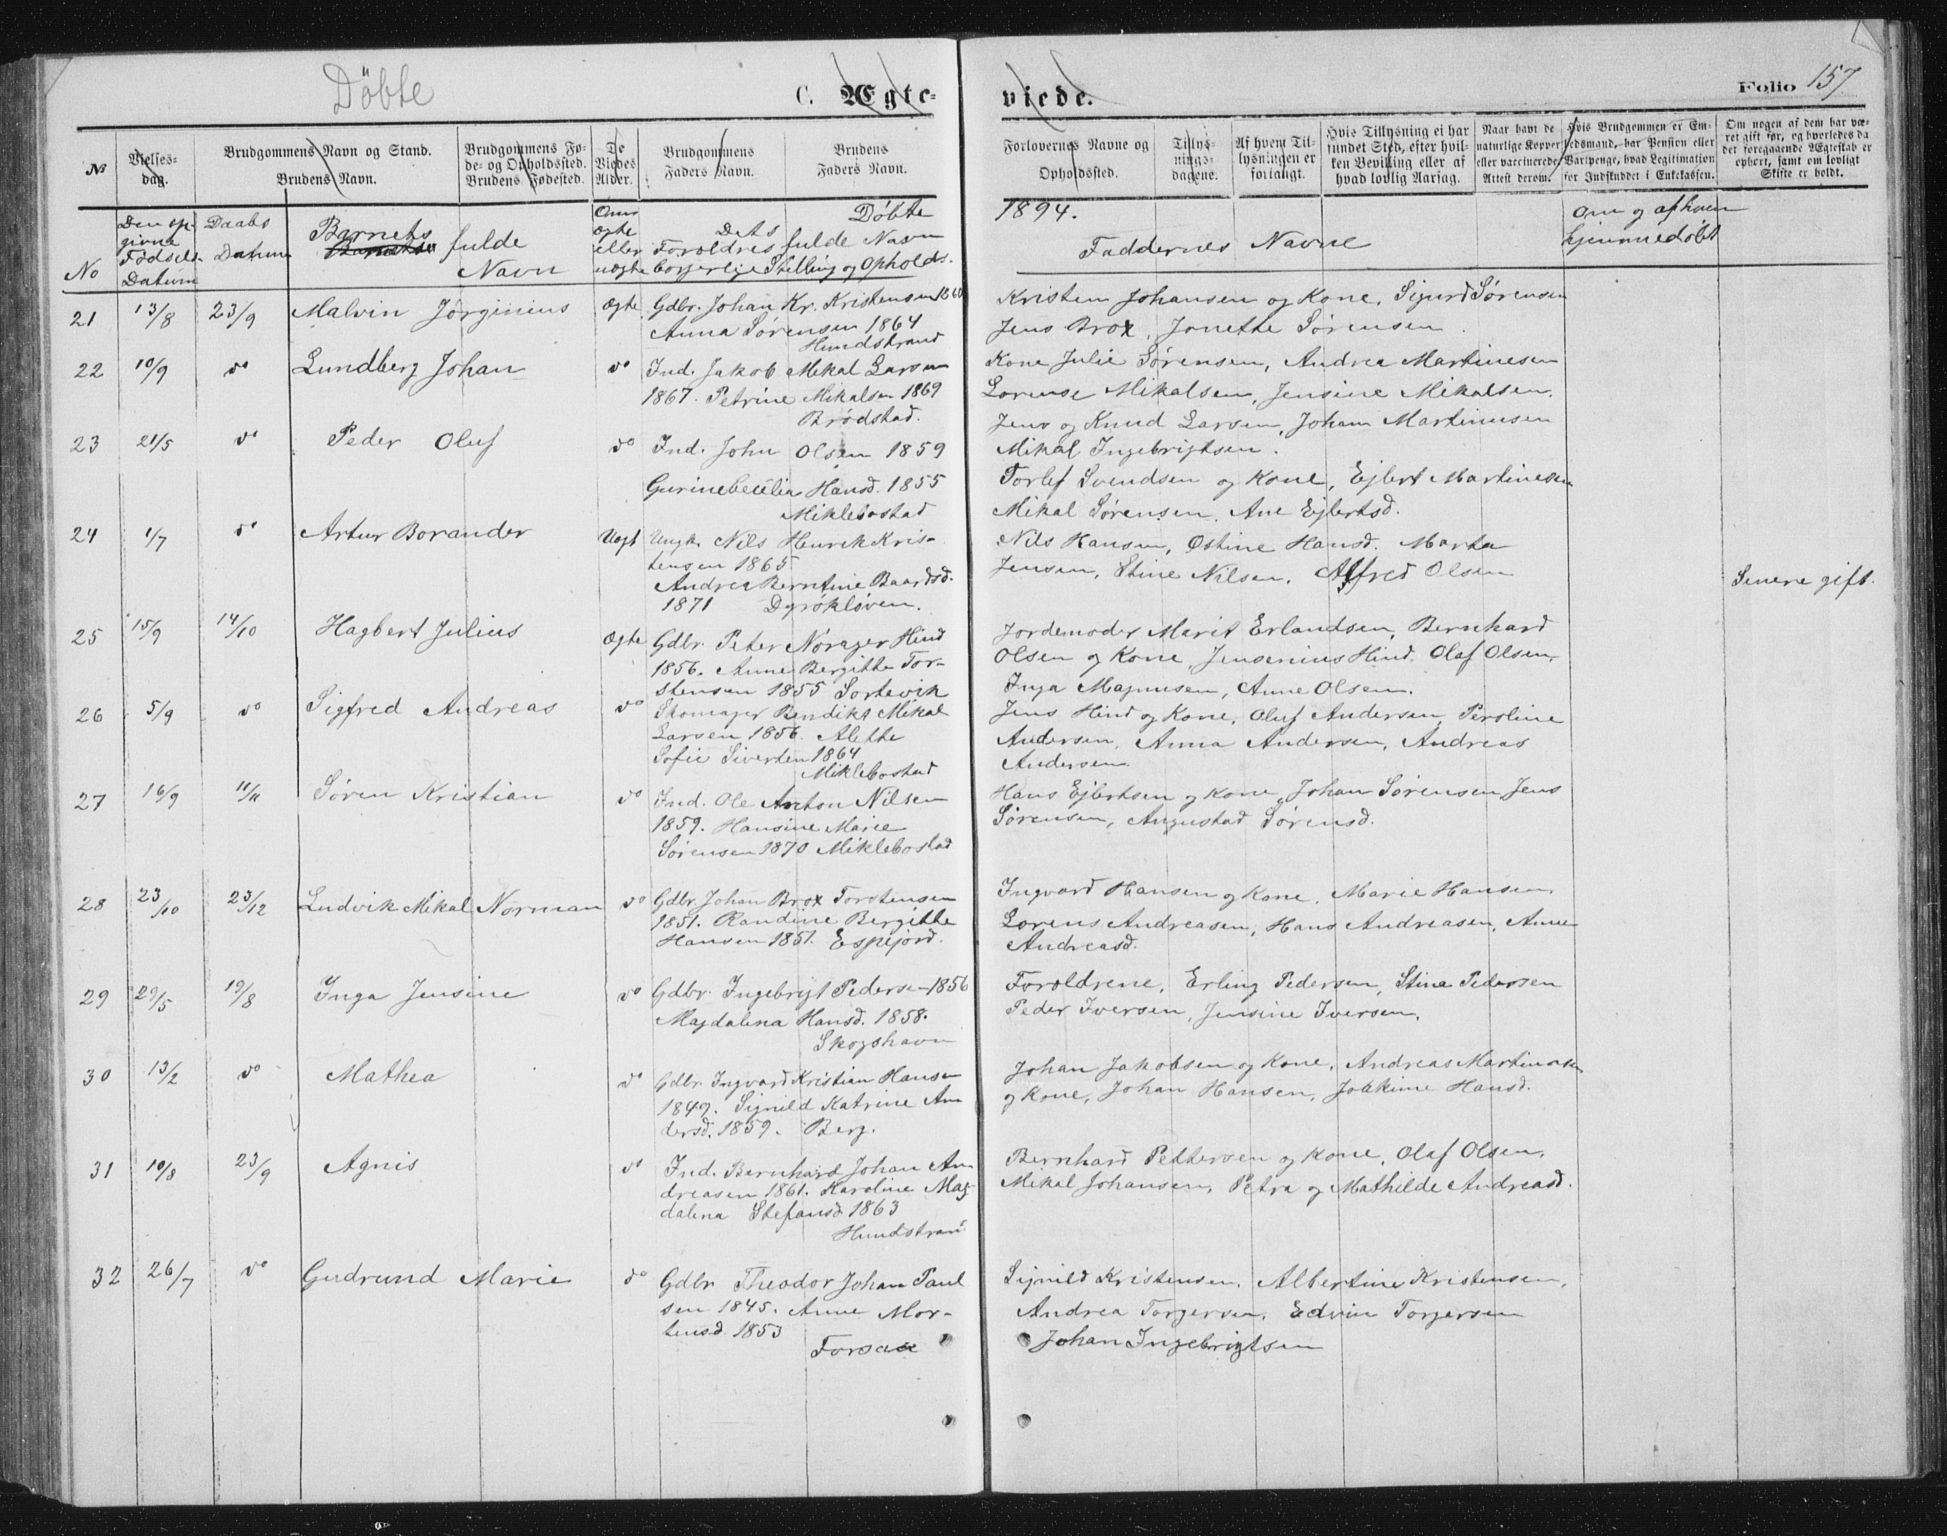 Döbte
C. Ægte-
viede.
Folio 157
No
Vielses-
dag.
Brudgommens Navn og Stand.
Brudens Navn.
Brudgommens Fø-
de- og Opholdssted.
Brudens Fødested.
De
Viedes
Alder.
Brudgommens
Faders Navn.
Brudens
Faders Navn.
Forlovernes Navne og
Opholdssted.
Tillys-
nings-
dagene.
Af hvem Til-
lysningen er
forlangt.
Hvis Tillysning ei har
fundet Sted, efter hvil-
ken Bevilling eller af
hvad lovlig Aarsag.
Naar havt de
naturlige Kopper
eller vaccinerede
Attest derom.
Hvis Brudgommen er Em-
bedsmand, har Pension eller
Vartpenge, hvad Legitimation
for Indskuddet i Enkekassen.
Om nogen af dem har væ-
ret gift før, og hvorledes da
det foregaaende Ægteskab er
ophørt, samt om lovligt
Skifte er holdt.
No
Den op-
givne
Födsels
Datum
Daabs
Datum
Barnets fulde
Navn
Om
ægte
eller
uægte
Döbte
Dets
Foroldres fulde Navn
borgerlige Stilling og Opholds.
1894.
Faddernes Navne
Om og af hvem
hjemmedöbt
21 13/8 23/9 Malvin Jörginius Ægte Gdbr. Johan Kr. Kristensen 1860
Anna Sørensen 1864
Hundstrand
Kristen Johansen og Kone, Sigurd Sørensen
Jens Brox, Jonette Sørensen.
22 10/9 do Lundberg Johan do Ind. Jakob Mikal Larsen
1867. Petrine Mikalsen 1869
Brödstad.
Kone Julie Sørensen, Andrea Martinesen
Lorense Mikalsen, Jensine Mikalsen.
Jens og Knud Larsen, Johan Martinusen
23 21/5 do Peder Oluf do Ind. John Olsen 1859
Gurinebecilia Hansd. 1855
Miklebostad
Mikal Ingebrigtsen.
Torlef Svendsen og Kone, Ejlert Martinesen
Mikal Sørensen, Ane Ejlertsd.
24 1/7 do Artur Borander Uegt Ungk. Nils Henrik Kris-
tensen 1865
Andrea Berntine Baardsd.
1871 Dyrökløven.
Nils Hansen, Østine Hansd. Marta
Jensen, Stine Nilsen, Alfred Olsen
Senere gift.
25 15/9 14/10 Hagbert Julius Ægte Gdbr. Peter Nörager Hind
1856. Anne Bergitte Tor-
stensen 1855 Sortevik
Jordemoder Marit Erlandsen, Bernhard
Olsen og Kone, Jensenius Hind. Olaf Olsen,
Inga Magnusen, Anne Olsen.
26 5/9 do Sigfred Andreas do Skomager Bendikt Mikal
Larsen 1856. Alette
Sofie Sivertsen 1864
Miklebostad
Jens Hind og Kone, Oluf Andersen, Peroline
Andersen, Anna Andersen, Andreas
Andersen.
27 16/9 11/11 Søren Kristian do Ind. Ole Anton Nilsen
1859. Hansine Marie
Sørensen 1870 Miklebostad
Hans Ejlertsen og Kone, Johan Sørensen Jens
Sørensen, Angustad Sørensd.
28 23/10 23/12 Ludvik Mikal Norman do Gdbr. Johan Brox Torstensen
1851. Randine Bergitte
Hansen 1851. Espejord.
Ingvard Hansen og Kone. Marie Hansen,
Lorens Andreasen, Hans Andreasen, Anne
Andreasd.
29 29/5 19/8 Inga Jensine do Gdbr. Ingebrigt Pedersen 1856
Magdalena Hansd. 1858.
Skogshavn
Foroldrene, Erling Pedersen, Stina Pedersen
Peder Iversen, Jensine Iversen,
30 13/2 do Mathea do Gdbr. Ingvard Kristian Hansen
1849. Signild Katrine An
dersd. 1859. Berg.
Johan Jakobsen og Kone, Andreas Martinusen
og Kone, Johan Hansen, Joakime Hansd.
31 10/8 23/9 Agnis do Ind. Bernhard Johan An-
dreasen 1861. Karoline Mag-
dalena Stefansd 1863
Hundstrand
Bernhard Pettersen og Kone, Olaf Olsen,
Mikal Johansen, Petra og Mathilde Andreasd.
32 26/7 do Gudrund Marie do Gdbr Theodor Johan Paul
sen 1845. Anne Mor-
tensd. 1853
Forsaa
Signild Kristensen, Albertine Kristensen,
Andrea Torgersen, Edvin Torgersen
Johan Ingebrigtsen